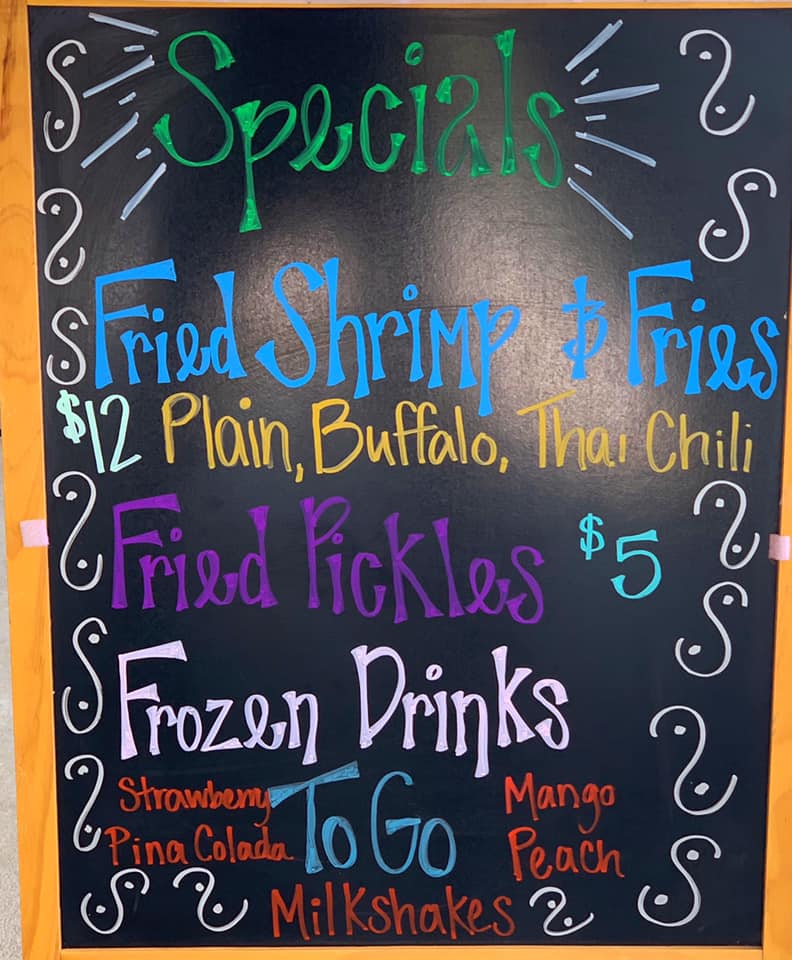 Specials
Fried Shrimp & Fries
$12 Plain, Buffalo, Thai Chili
Fried Pickles $5
Frozen Drinks
Strawberry To Go Mango
Pina Colada Peach
Milkshakes